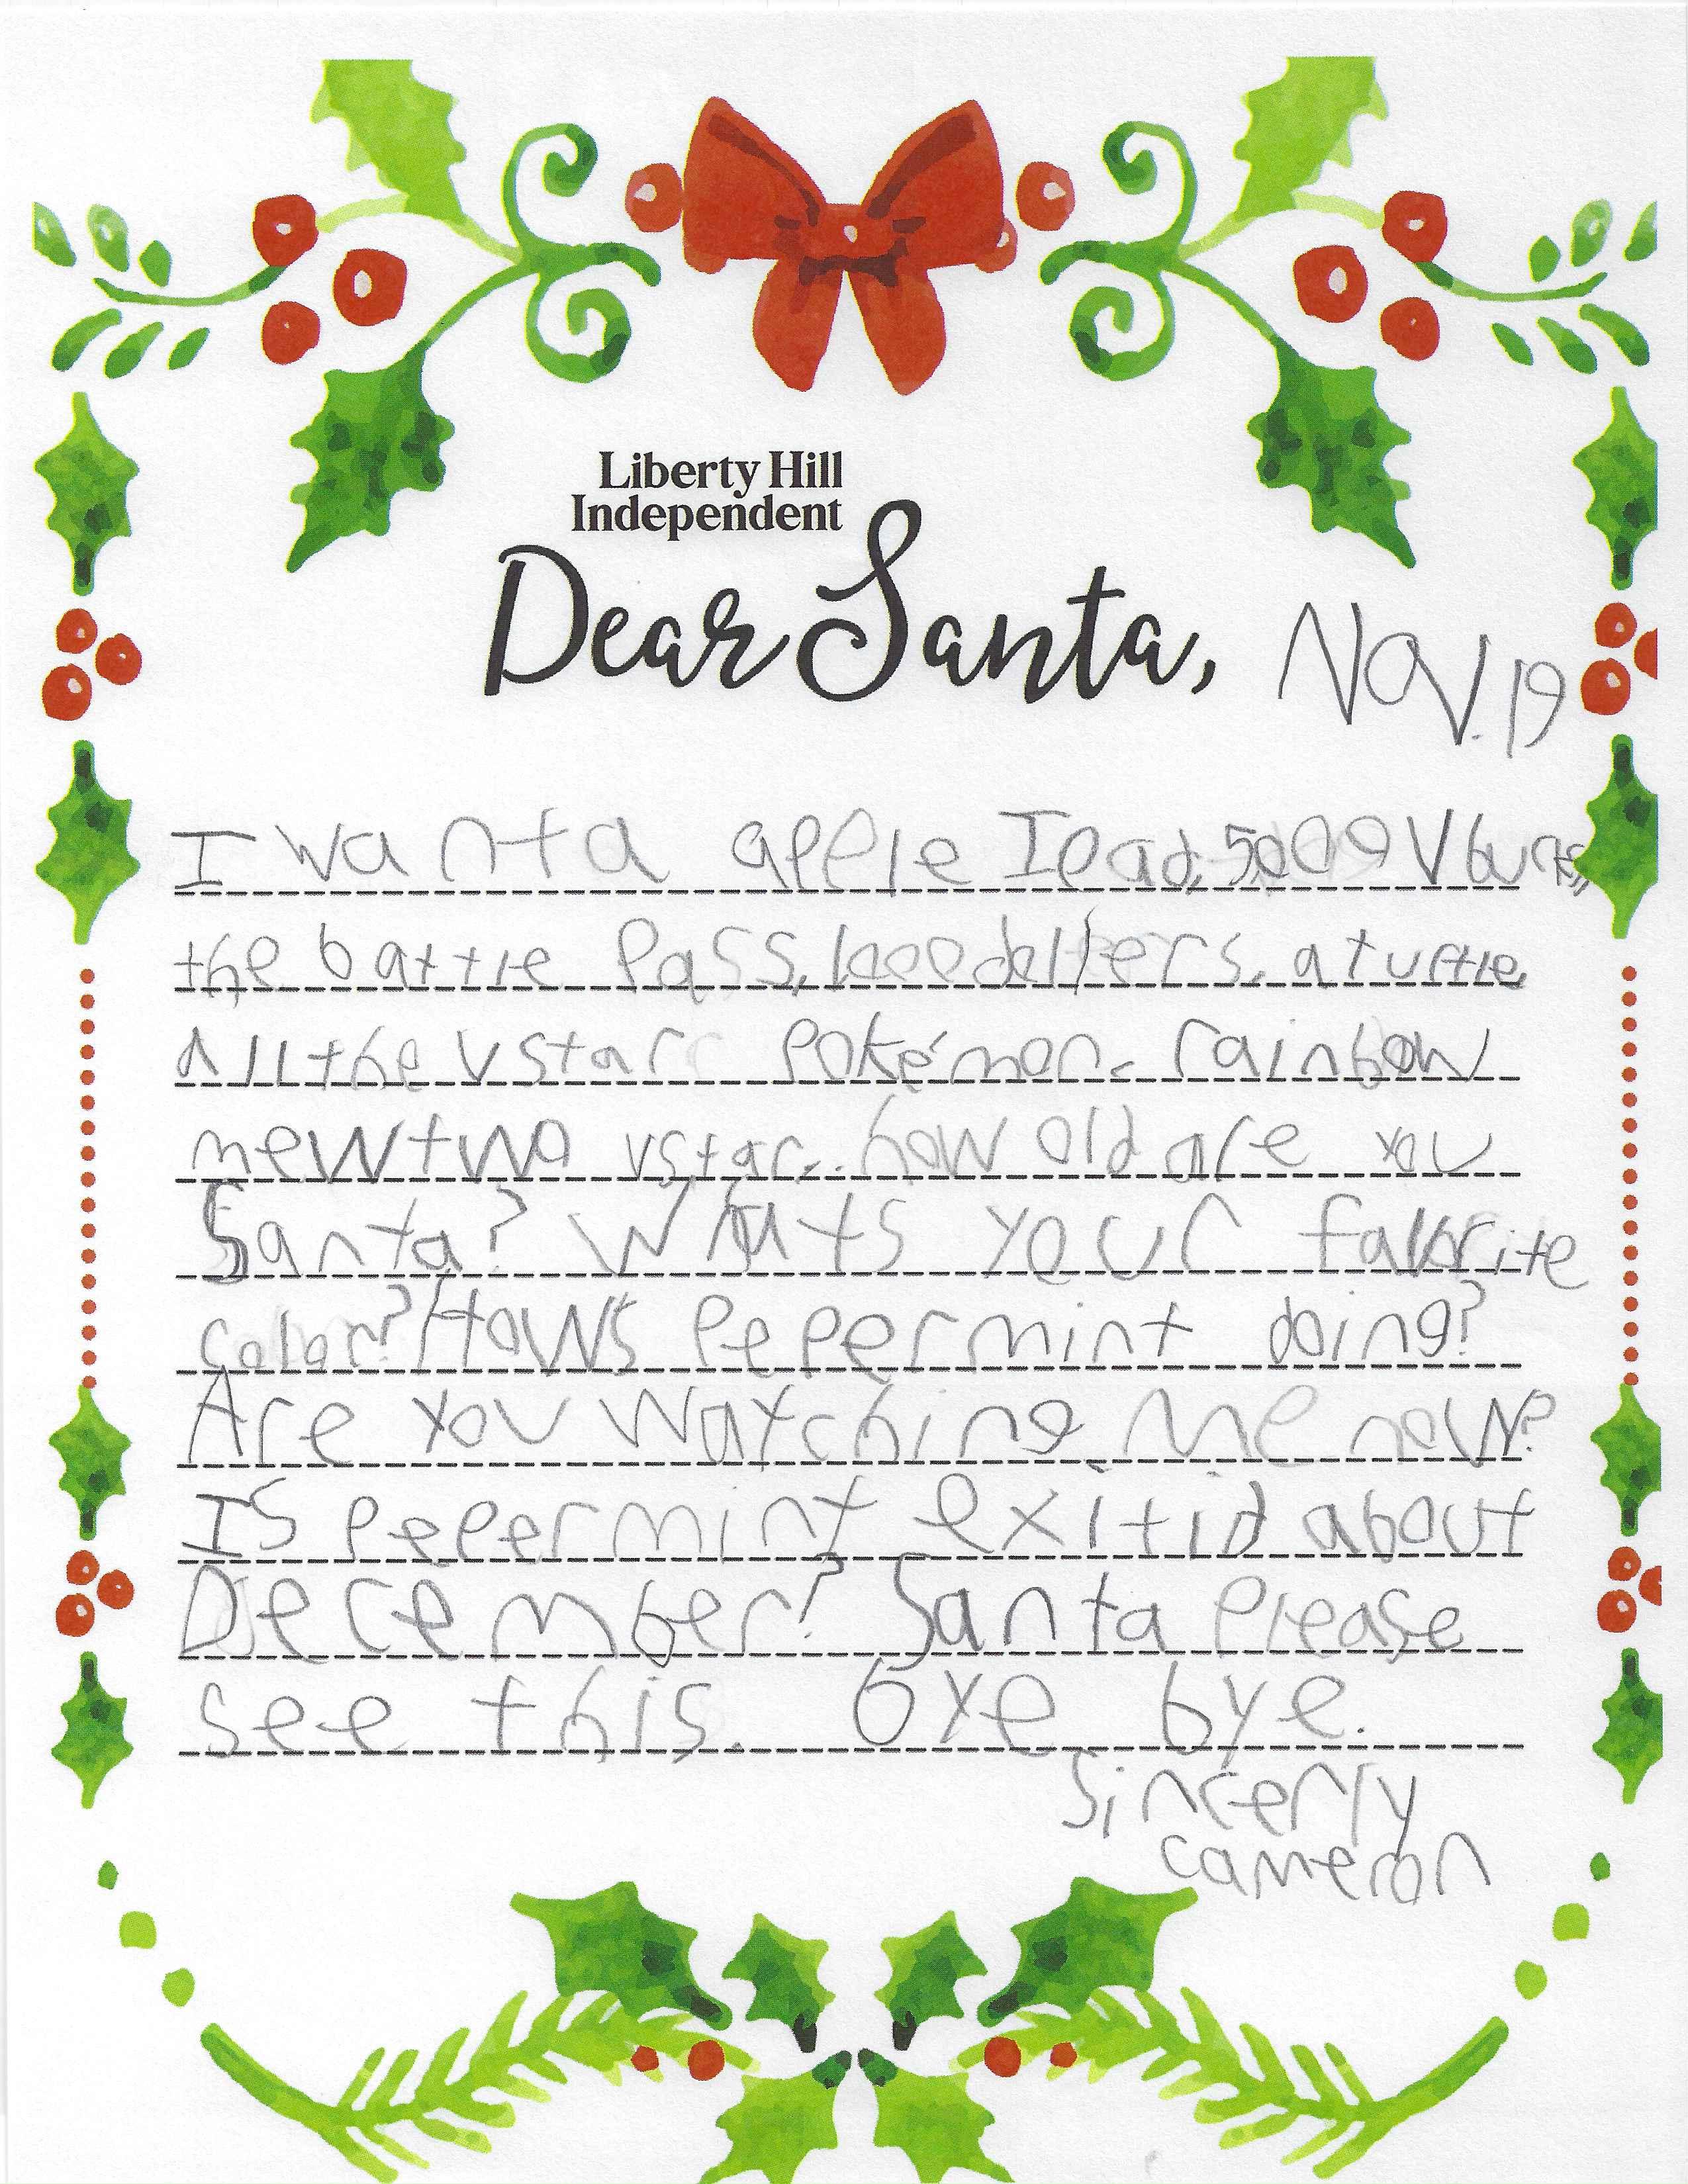 Liberty Hill
Independent
Dear Santa,
Nov. 19
I want a apple Ipad, 50009 Vbucks,
the battle pass, 1000 dollers, a turtle,
all the vstar pokémon. rainbow
mewtwo vstar.. how old are you
Santa? Whats your favorite
color? Hows Pepermint doing?
Are you watching me now?
Is pepermint exitid about
December? Santa please
see this. bye bye.
Sincerly
cameron